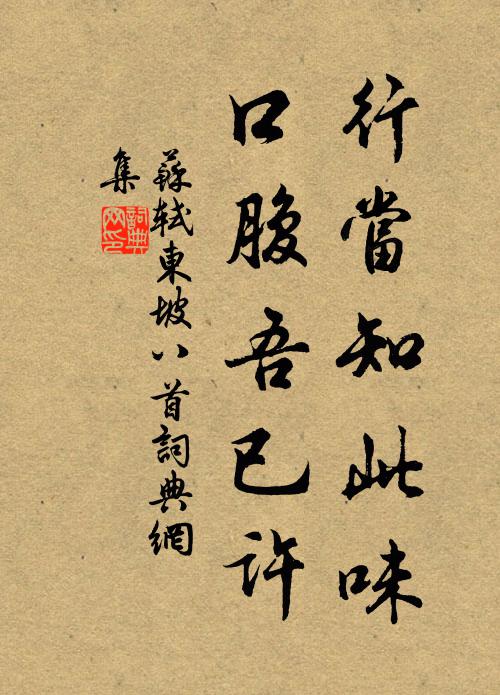 行當知此味
口腹吾已許
蘇軾東坡八首詞典網
集
詞典網印